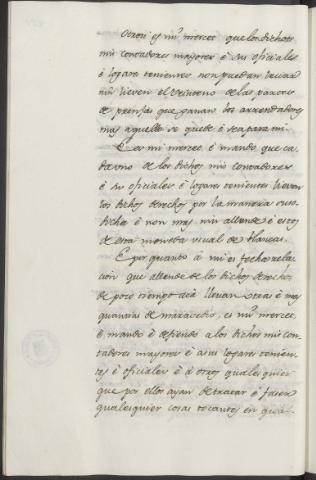 Otrosi es mi merced que los dichos
mis contadores mayores é sus oficiales
é logares tenientes non puedan levar
nin lieven el diezmo de las
de prensas que ganan los arrendadores
mas aquello se quede é sea para mi.
E es mi merced, é mando, que ca-
da uno de los dichos mis contadores
é sus oficiales é logares tenientes lieven
los dichos derechos por la manera suso
dicha é non mas nin allende é estos
de esta moneda usual de blancas.
E por quanto á mi es fecha rela-
cion que allende de los dichos derechos
de poco tiempo acá llevan otras é mas
quantias de maravedis, es mi merced
é mando é defiendo a los dichos mis con-
tadores mayores é a sus logares tenien-
tes é oficiales é á otros qualesquier
que por ellos ayan de tratar é facer
qualesquier cosas tocantes en qual-